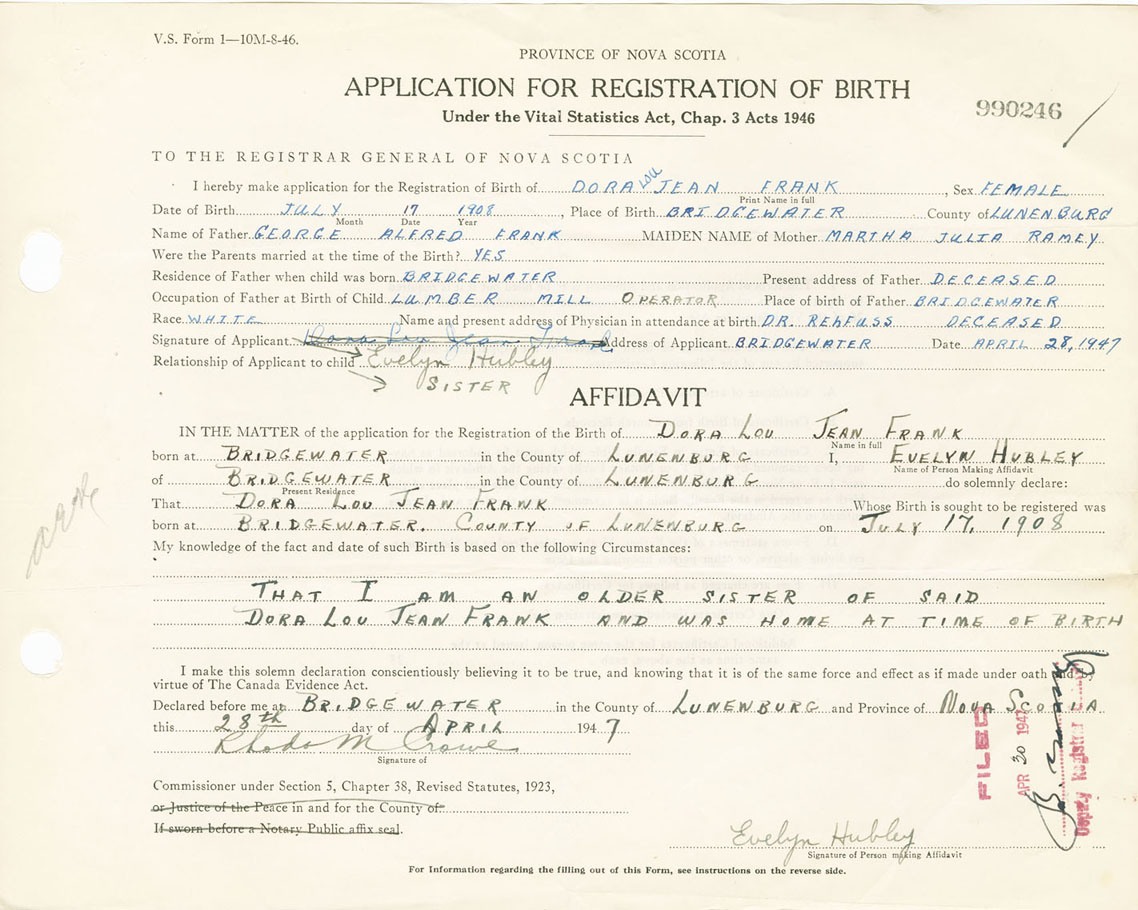 V.S. Form 1—10M-8-46.
PROVINCE OF NOVA SCOTIA
APPLICATION FOR REGISTRATION OF BIRTH
990246
Under the Vital Statistics Act, Chap. 3 Acts 1946
TO THE REGISTRAR GENERAL OF NOVA SCOTIA
I hereby make application for the Registration of Birth of DORA LOU JEAN FRANK, Sex FEMALE
Print Name in full
Date of Birth JULY 17 1908, Place of Birth BRIDGEWATER County of LUNENBURG
Month Date Year
Name of Father GEORGE ALFRED FRANK MAIDEN NAME of Mother MARTHA JULIA RAMEY
Were the Parents married at the time of the Birth? YES
Residence of Father when child was born BRIDGEWATER Present address of Father DECEASED
Occupation of Father at Birth of Child LUMBER MILL OPERATOR Place of birth of Father BRIDGEWATER
Race WHITE Name and present address of Physician in attendance at birth DR. REHFUSS DECEASED
Signature of Applicant Dora Lou Jean Frank Address of Applicant BRIDGEWATER Date APRIL 28, 1947
Relationship of Applicant to child Evelyn Hubley
SISTER
AFFIDAVIT
IN THE MATTER of the application for the Registration of the Birth of DORA LOU JEAN FRANK
Name in full
born at BRIDGEWATER in the County of LUNENBURG I, EVELYN HUBLEY
Name of Person Making Affidavit
of BRIDGEWATER in the County of LUNENBURG do solemnly declare:
Present Residence
That DORA LOU JEAN FRANK Whose Birth is sought to be registered was
born at BRIDGEWATER, COUNTY OF LUNENBURG on JULY 17, 1908
My knowledge of the fact and date of such Birth is based on the following Circumstances:
THAT I AM AN OLDER SISTER OF SAID
DORA LOU JEAN FRANK AND WAS HOME AT TIME OF BIRTH
I make this solemn declaration conscientiously believing it to be true, and knowing that it is of the same force and effect as if made under oath and by
virtue of The Canada Evidence Act.
Declared before me at BRIDGEWATER in the County of LUNENBURG and Province of NOVA SCOTIA
this 28th day of APRIL 1947
Rhoda M Crowe
Signature of
Commissioner under Section 5, Chapter 38, Revised Statutes, 1923,
or Justice of the Peace in and for the County of
If sworn before a Notary Public affix seal.
Evelyn Hubley
Signature of Person making Affidavit
For Information regarding the filling out of this Form, see instructions on the reverse side.
FILED
APR 30 1947
Deputy Registrar General